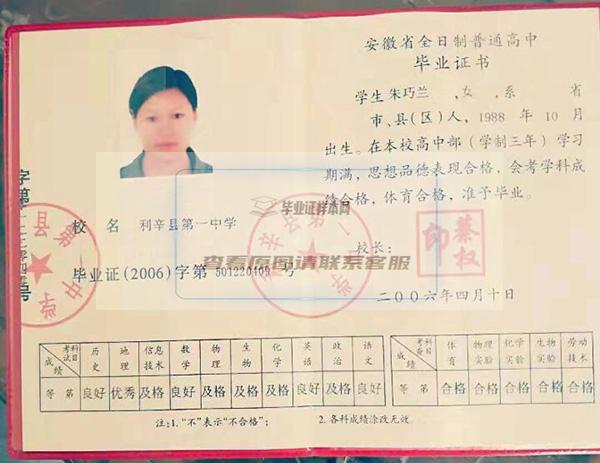 安徽省全日制普通高中
毕业证书
学生 朱巧兰 ,女,系 省
市、县(区)人, 1988 年 10 月
出生。在本校高中部(学制三年)学习
期满,思想品德表现合格,会考学科成
绩合格,体育合格,准予毕业。
校 名 利辛县第一中学
校长:
蔡权印
毕业证(2006)字第 501220109 号
二00六年四月十日
毕业证样本网
查看原图请联系客服
考试科目 历史 地理 信息技术 数学 物理 生物 化学 英语 政治 语文
成绩
等 第 良好 优秀 及格 良好 及格 及格 及格 良好 及格 良好
考查科目 体育 物理实验 化学实验 生物实验 劳动技术
成绩
等 第 合格 合格 合格 合格 合格
注:1."不"表示"不合格"; 2.各科成绩涂改无效。